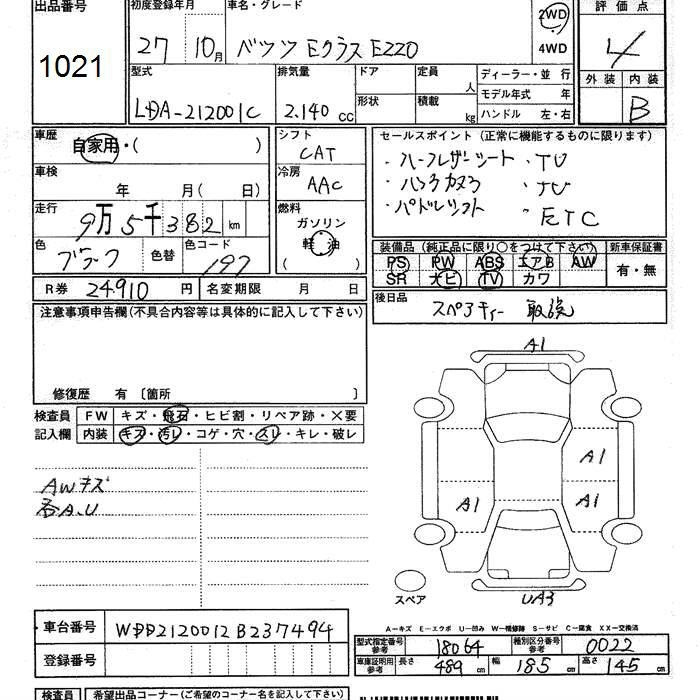 出品番号
1021
初度登録年月
27 10月
車名・グレード
ベンツ Eクラス E220
2WD
4WD
評価点
4
外装 内装
B
型式
LDA-212001C
排気量
2.140 cc
ドア
形状
定員 人
積載 kg
ディーラー・並 行
モデル年式 年
ハンドル 左・右
車歴
自家用・( )
車検
年 月( 日)
走行
9万5千382 km
色
ブラック
色替
色コード
197
シフト
CAT
冷房
AAC
燃料
ガソリン
軽 油
セールスポイント (正常に機能するものに限ります)
・ハーフレザーシート ・TV
・バックカメラ ・ナビ
・パドルシフト ・ETC
装備品 (純正品に限り○をつけて下さい)
PS PW ABS エアB AW
SR ナビ TV カワ
新車保証書
有・無
R券 24910 円
名変期限 月 日
後日品
スペアキー 取説
注意事項申告欄(不具合内容等は具体的に記入して下さい)
修復歴 有 〔箇所 〕
検査員
記入欄
FW キズ・飛石・ヒビ割・リペア跡・X要
内装 キズ・汚レ・コゲ・穴・スレ・キレ・破レ
AWキズ
各A.U
A1
A1
A1
A1
UA3
スペア
A-キズ E-エクボ U-凹み W-補修跡 S-サビ C-腐食 XX-交換済
車台番号 WDD2120012B237494
登録番号
型式指定番号
参考
18064
種別区分番号
参考
0022
車庫証明用
参考
長さ 489 cm 幅 185 cm 高さ 145 cm
検査員 希望出品コーナー(ご希望のコーナー名を記入して下さい)